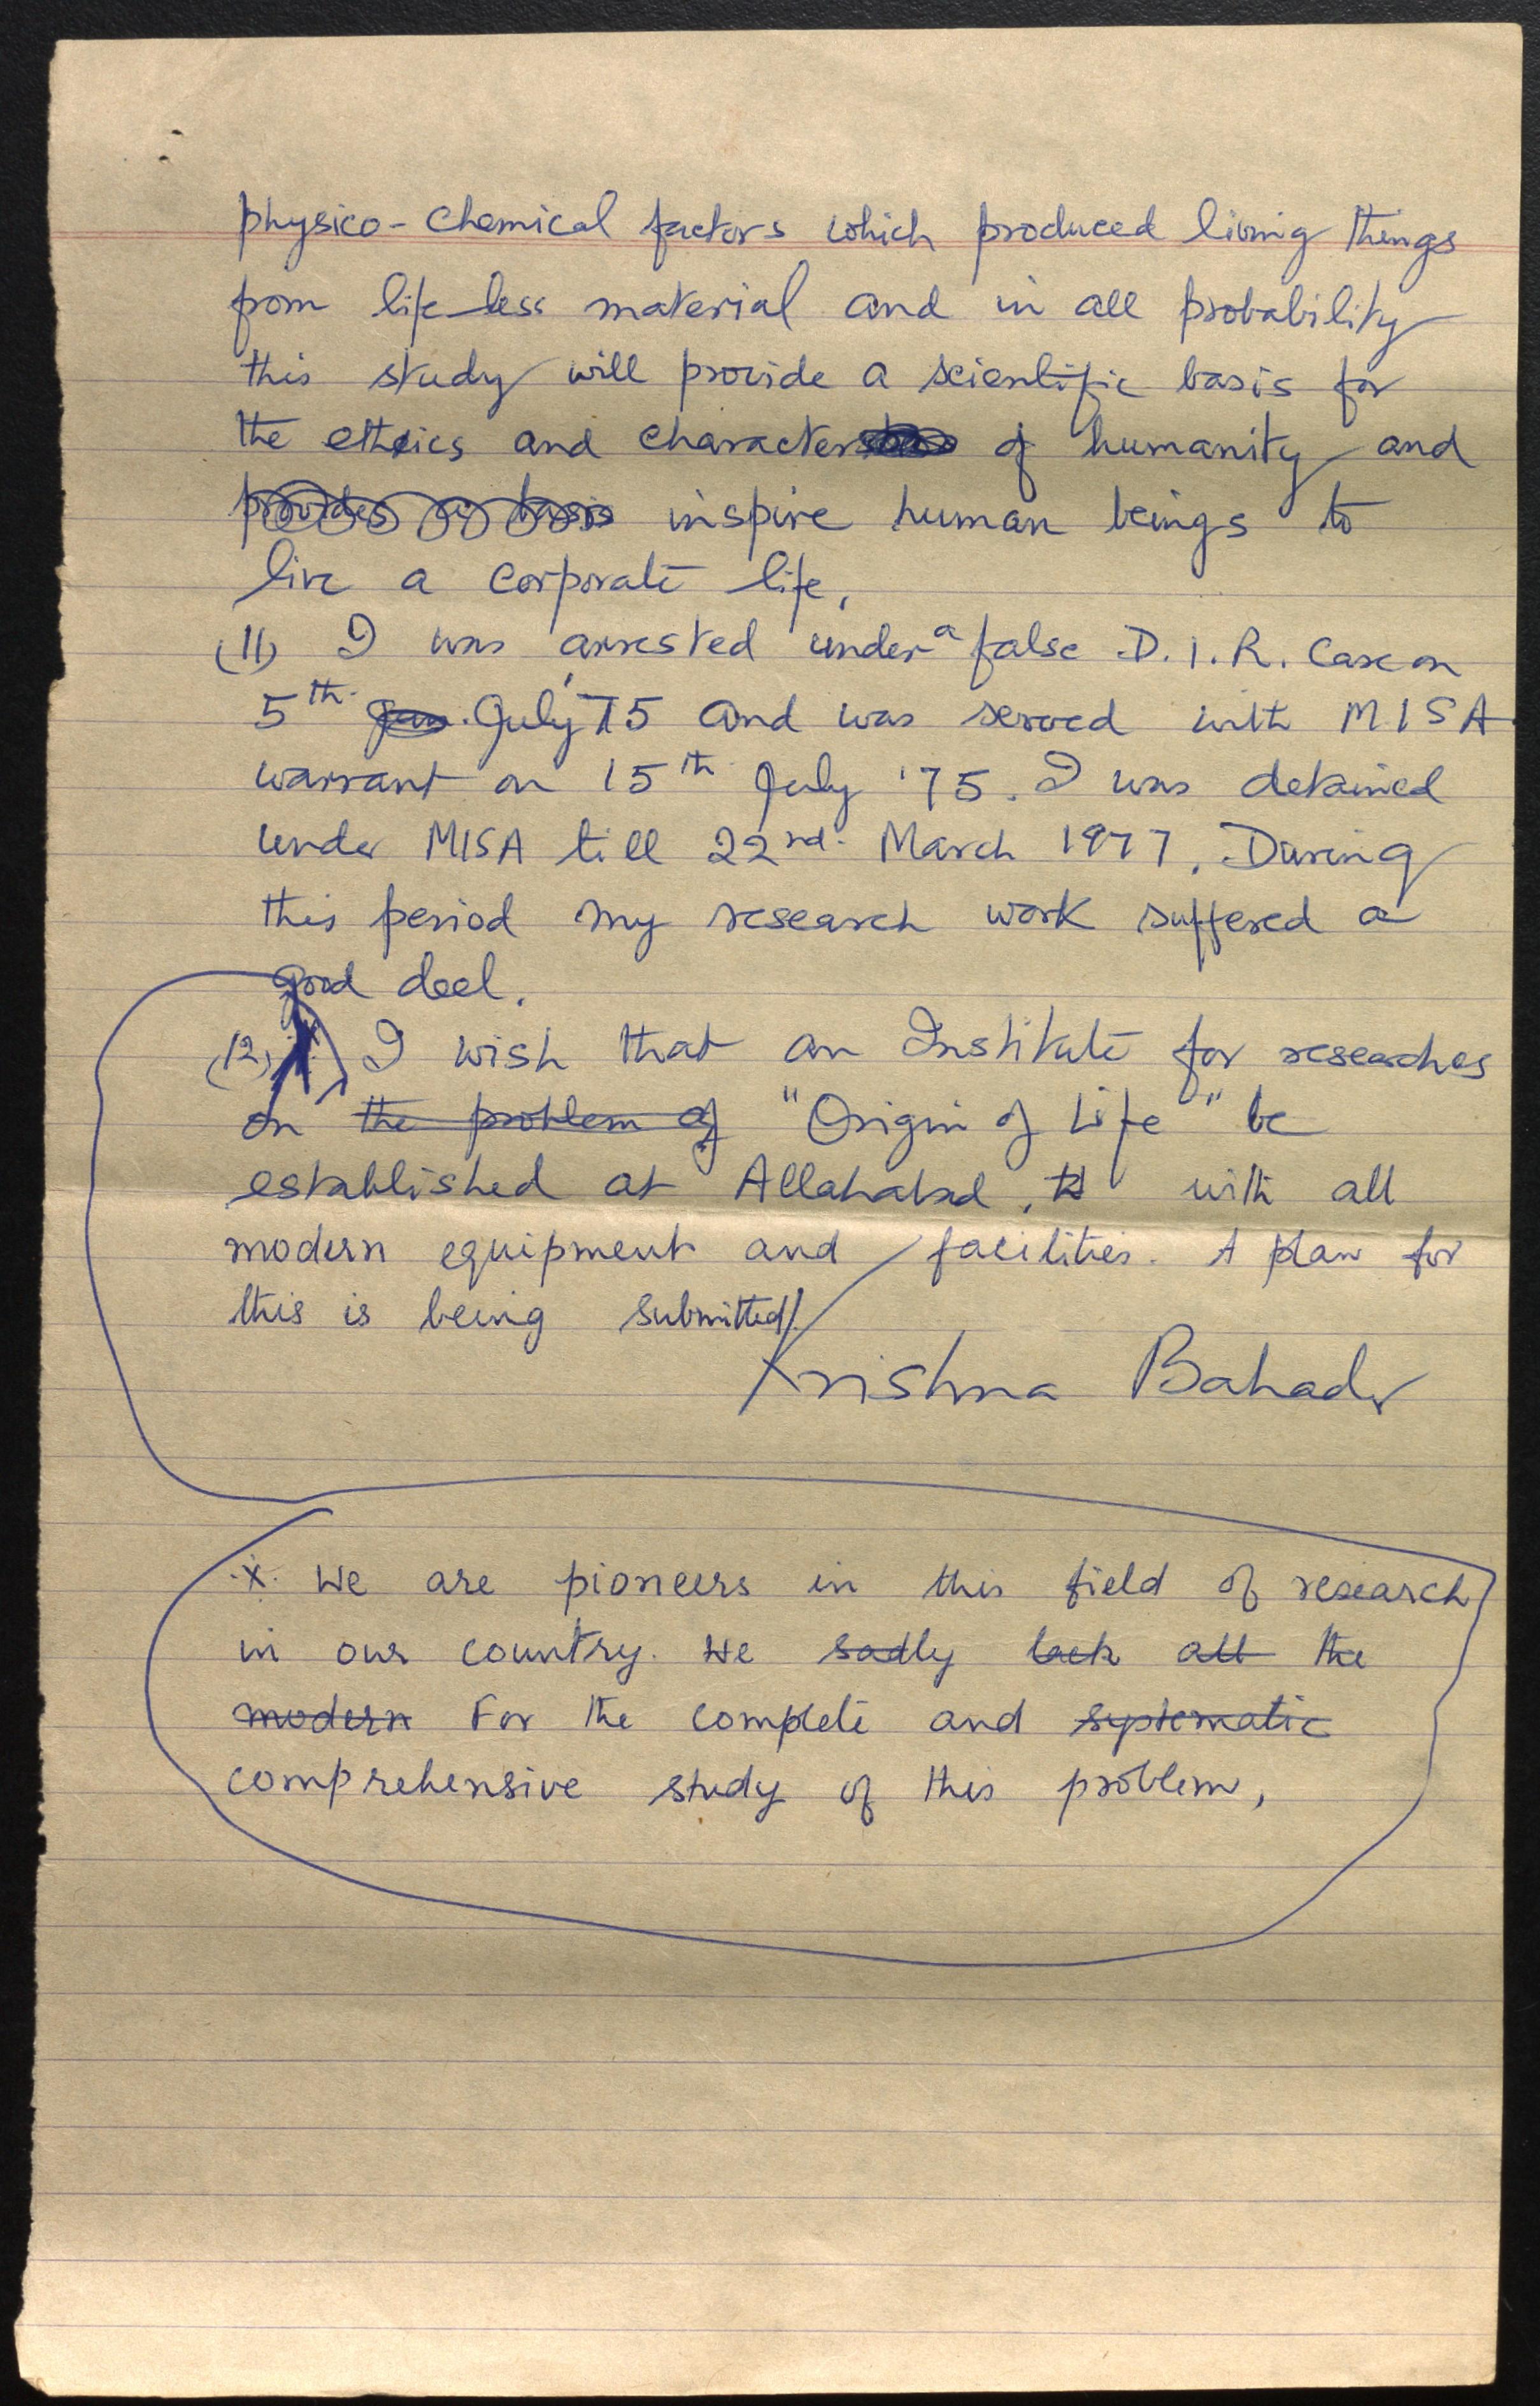 physico-chemical factors which produced living things
from life-less material and in all probability
this study will provide a scientific basis for
the ethics and character of humanity and
provides a basis inspire human beings to
live a corporate life.
(11) I was arrested under a false D.I.R. Case on
5th. Jan. July '75 and was served with MISA
warrant on 15th July '75. I was detained
under MISA till 22nd. March 1977. During
this period my research work suffered a
good deel.
(12) I wish that an Institute for researches
on the problem of "Origin of Life" be
established at Allahabad, with all
modern equipment and facilities. A plan for
this is being submitted.
Krishna Bahadur
X We are pioneers in this field of research
in our country. We sadly lack all the
modern For the complete and systematic
comprehensive study of this problem,